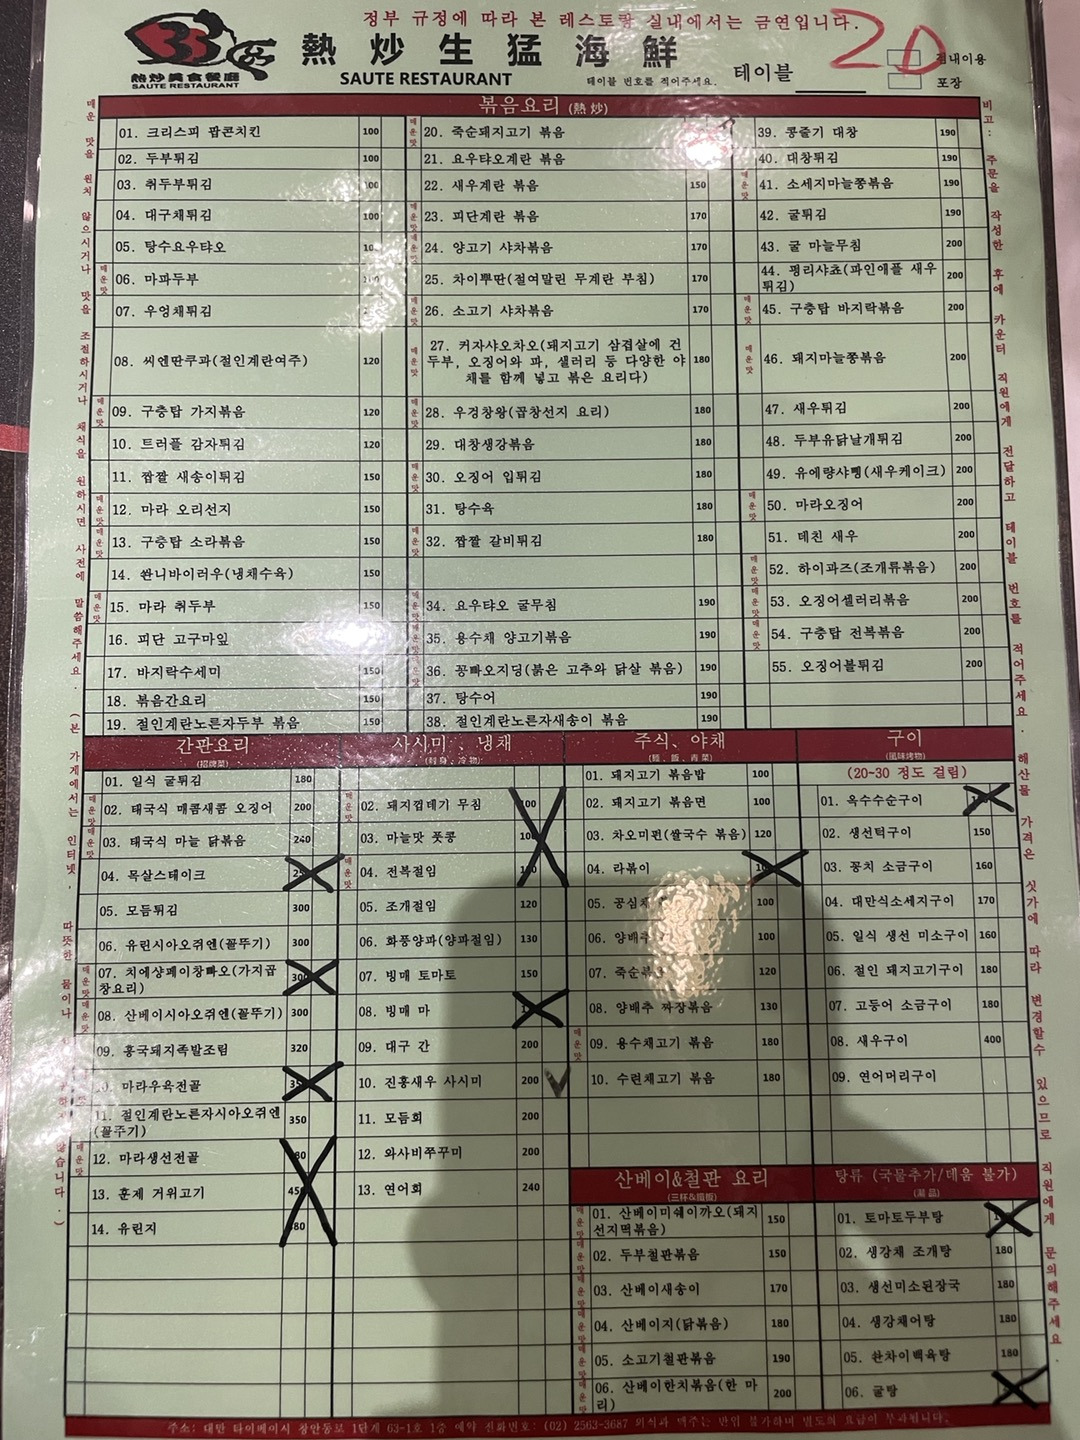 정부 규정에 따라 본 레스토랑 실내에서는 금연입니다.
33
熱炒美食餐廳
SAUTE RESTAURANT
熱炒生猛海鮮
SAUTE RESTAURANT
테이블 번호를 적어주세요.
테이블 20
점내이용
포장
볶음요리 (熱炒)
01. 크리스피 팝콘치킨 100
02. 두부튀김 100
03. 취두부튀김 100
04. 대구채튀김 100
05. 탕수요우탸오
매운맛 06. 마파두부
07. 우엉채튀김
08. 씨엔딴쿠과(절인계란여주) 120
매운맛 09. 구층탑 가지볶음 120
10. 트러플 감자튀김 120
11. 짭짤 새송이튀김 150
매운맛 12. 마라 오리선지 150
매운맛 13. 구층탑 소라볶음 150
14. 쏸니바이러우(냉채수육) 150
매운맛 15. 마라 취두부 150
16. 피단 고구마잎
17. 바지락수세미 150
18. 볶음간요리 150
19. 절인계란노른자두부 볶음 150
매운맛 20. 죽순돼지고기 볶음
21. 요우탸오계란 볶음
22. 새우계란 볶음 150
매운맛 23. 피단계란 볶음 170
매운맛 24. 양고기 샤차볶음 170
25. 차이뿌딴(절여말린 무계란 부침) 170
매운맛 26. 소고기 샤차볶음 170
매운맛 27. 커자샤오차오(돼지고기 삼겹살에 건
두부, 오징어와 파, 샐러리 등 다양한 야
채를 함께 넣고 볶은 요리다) 180
매운맛 28. 우겅창왕(곱창선지 요리) 180
29. 대창생강볶음 180
매운맛 30. 오징어 입튀김 180
31. 탕수육 180
매운맛 32. 짭짤 갈비튀김 180
매운맛 34. 요우탸오 굴무침 190
매운맛 35. 용수채 양고기볶음 190
매운맛 36. 꽁빠오지딩(붉은 고추와 닭살 볶음) 190
37. 탕수어 190
38. 절인계란노른자새송이 볶음 190
39. 콩줄기 대창 190
40. 대창튀김 190
매운맛 41. 소세지마늘쫑볶음 190
42. 굴튀김 190
43. 굴 마늘무침 200
44. 펑리샤쵸(파인애플 새우
튀김) 200
매운맛 45. 구층탑 바지락볶음 200
매운맛 46. 돼지마늘쫑볶음 200
47. 새우튀김 200
48. 두부유닭날개튀김 200
49. 유에량샤삥(새우케이크) 200
매운맛 50. 마라오징어 200
51. 데친 새우 200
매운맛 52. 하이파즈(조개류볶음) 200
매운맛 53. 오징어셀러리볶음 200
매운맛 54. 구층탑 전복볶음 200
55. 오징어볼튀김 200
간판요리
(招牌菜)
01. 일식 굴튀김 180
매운맛 02. 태국식 매콤새콤 오징어 200
매운맛 03. 태국식 마늘 닭볶음 240
04. 목살스테이크
05. 모듬튀김 300
06. 유린시아오쥐옌(꼴뚜기) 300
매운맛 07. 치에샹페이창빠오(가지곱
창요리) 300
매운맛 08. 산베이시아오쥐옌(꼴뚜기) 300
09. 홍국돼지족발조림 320
10. 마라우육전골
11. 절인계란노른자시아오쥐옌
(꼴주기) 350
매운맛 12. 마라생선전골
13. 훈제 거위고기
14. 유린지
사시미 、냉채
(刺身、冷物)
매운맛 02. 돼지껍데기 무침 100
03. 마늘맛 풋콩
매운맛 04. 전복절임
05. 조개절임 120
06. 화풍양파(양파절임) 130
07. 빙매 토마토 150
08. 빙매 마
09. 대구 간 200
10. 진홍새우 사시미 200
11. 모듬회 200
12. 와사비쭈꾸미 200
13. 연어회 240
주식、야채
(麵、飯、青菜)
01. 돼지고기 볶음밥 100
02. 돼지고기 볶음면 100
03. 차오미펀(쌀국수 볶음) 120
04. 라볶이
05. 공심채 100
06. 양배추 100
07. 죽순볶음 120
08. 양배추 짜장볶음 130
매운맛 09. 용수채고기 볶음 180
10. 수련채고기 볶음 180
구이
(風味烤物)
(20-30 정도 걸림)
01. 옥수수순구이
02. 생선턱구이 150
03. 꽁치 소금구이 160
04. 대만식소세지구이 170
05. 일식 생선 미소구이 160
06. 절인 돼지고기구이 180
07. 고등어 소금구이 180
08. 새우구이 400
09. 연어머리구이
산베이&철판 요리
(三杯&鐵板)
매운맛 01. 산베이미쉐이까오(돼지
선지떡볶음) 150
매운맛 02. 두부철판볶음 150
매운맛 03. 산베이새송이 170
매운맛 04. 산베이지(닭볶음) 180
매운맛 05. 소고기철판볶음 190
매운맛 06. 산베이한치볶음(한 마
리) 200
탕류 (국물추가/데움 불가)
(湯品)
01. 토마토두부탕
02. 생강채 조개탕 180
03. 생선미소된장국 180
04. 생강채어탕 180
05. 쏸차이백육탕 180
06. 굴탕
매운 맛을 원치 않으시거나 맛을 조절하시거나 채식을 원하시면 사전에 말씀해주세요. (본 가게에서는 인터넷, 따뜻한 물이나
않습니다.)
비고: 주문을 작성한 후에 카운터 직원에게 전달하고 테이블 번호를 적어주세요. 해산물 가격은 싯가에 따라 변경할수 있으므로 직원에게 문의해주세요.
주소: 대만 타이베이시 창안동로 1단계 63-1호 1층 예약 전화번호: (02) 2563-3687 외식과 맥주는 반입 불가하며 별도의 요금이 부과됩니다.